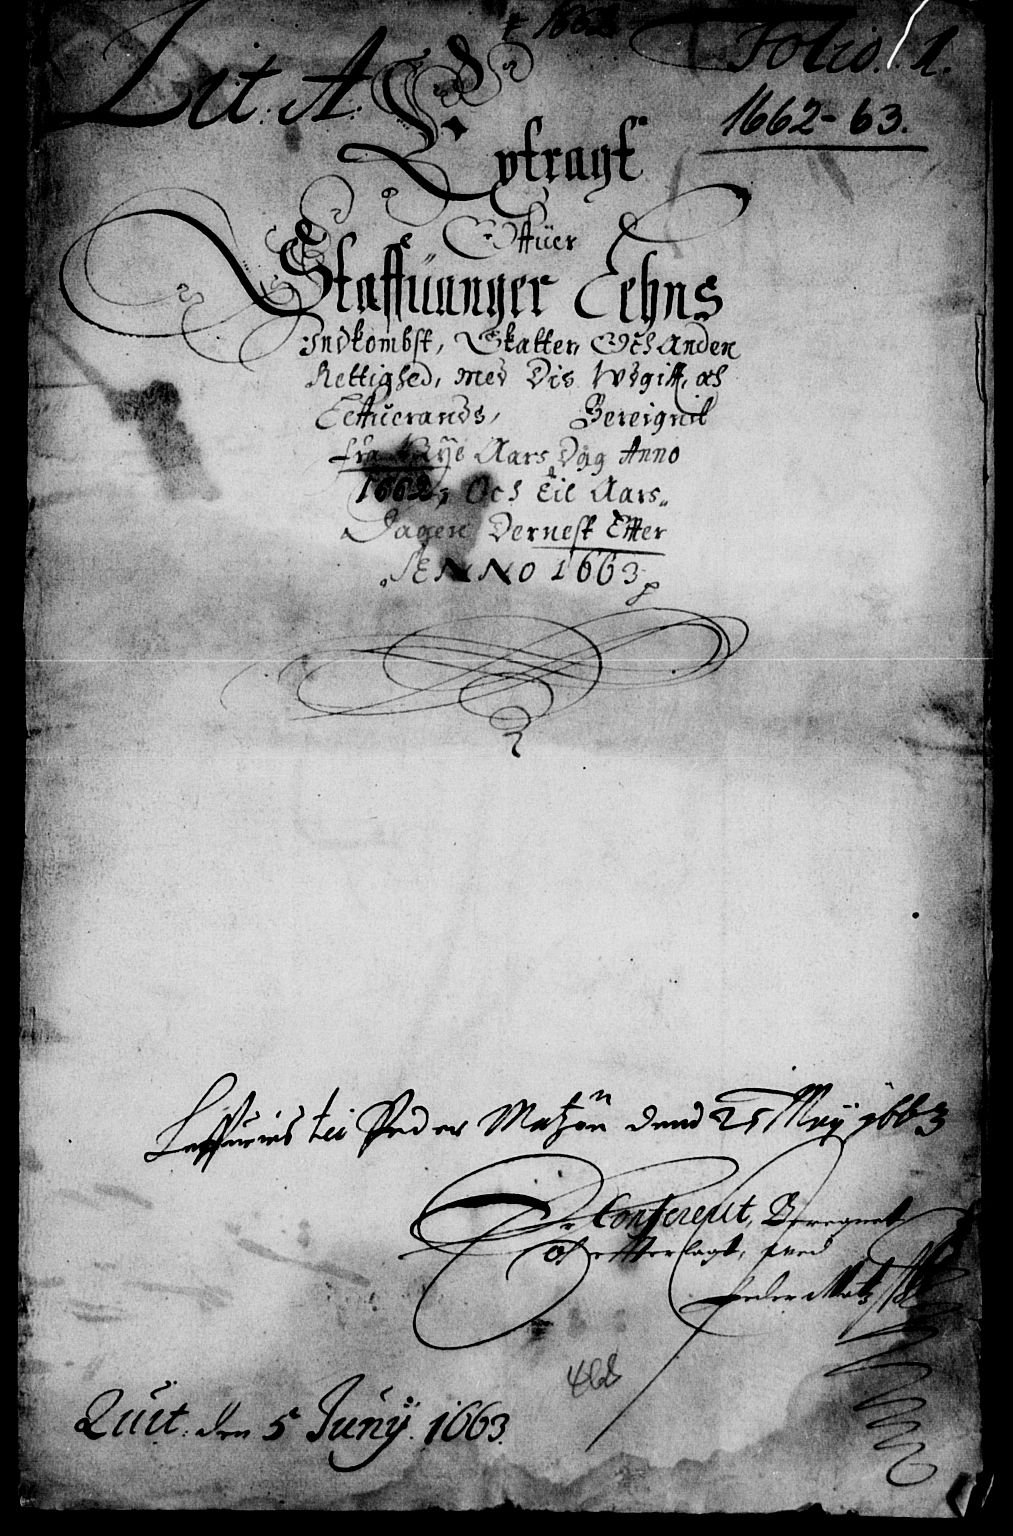 Lit. A.
Folio. 1.
1662-63.
Extragt
Offuer
Staffuanger Lehns
Indkombst, Skatter, Och Anden
Rettighed, med Dis Wdgifft, och
Leffuerands, Bereignit
fra Nye Aars Dag Anno
1662, Och til Aars
Dagen Dernest Effter
ANNO 1663
Peder Matzen dend 25 Maij 1663
Confererit, Beregnet
och effterlagt, med
Peder Matz
Quit. den 5 Junij. 1663.